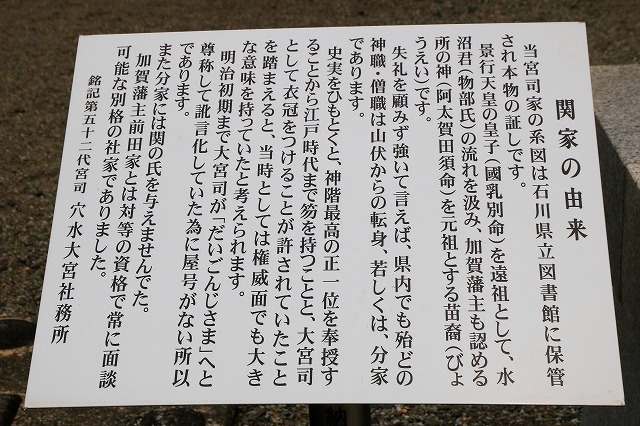 関家の由来
当宮司家の系図は石川県立図書館に保管
され本物の証しです。
景行天皇の皇子（國乳別命）を遠祖として、水
沼君（物部氏）の流れを汲み、加賀藩主も認める
所の神（阿太賀田須命）を元祖とする苗裔（びょ
うえい）です。
失礼を顧みず強いて言えば、県内でも殆どの
神職・僧職は山伏からの転身、若しくは、分家
であります。
史実をひもとくと、神階最高の正一位を奉授す
ることから江戸時代まで笏を持つことと、大宮司
として衣冠をつけることが許されていたこと
を踏まえると、当時としては権威面でも大き
な意味を持っていたと考えられます。
明治初期まで大宮司が「だいごんじさま」へと
尊称して訛言化していた為に屋号がない所以
であります。
また分家には関の氏を与えませんでた。
加賀藩主前田家とは対等の資格で常に面談
可能な別格の社家でありました。
銘記第五十二代宮司 穴水大宮社務所
納